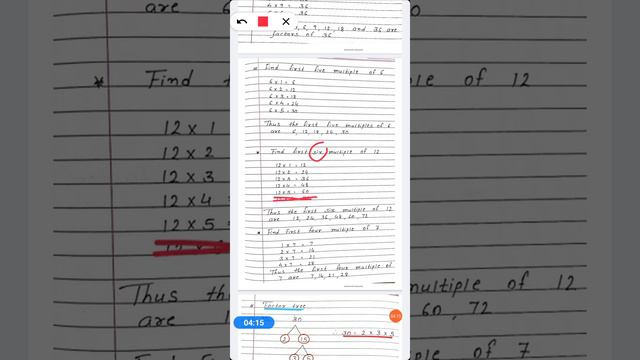 6 x 9 = 36
6, 9, 12, 18 and 36 are
factors of 36
* Find first five multiple of 6
6 x 1 = 6
6 x 2 = 12
6 x 3 = 18
6 x 4 = 24
6 x 5 = 30
Thus the first five multiples of 6
are 6, 12, 18, 24, 30
* Find first six multiple of 12
12 x 1 = 12
12 x 2 = 24
12 x 3 = 36
12 x 4 = 48
12 x 5 = 60
Thus the first six multiple of 12
are 12, 24, 36, 48, 60, 72
* Find first four multiple of 7
1 x 7 = 7
2 x 7 = 14
3 x 7 = 21
4 x 7 = 28
Thus the first four multiple of
7 are 7, 14, 21, 28
* Factor tree
30
2 15
3 5
∴ 30 = 2 x 3 x 5
04:15
04:15
are 6
* Find
12 x 1
12 x 2
12 x 3
12 x 4
12 x 5
Thus th
are 1
ple of 12
multiple of 12
60, 72
e of 7